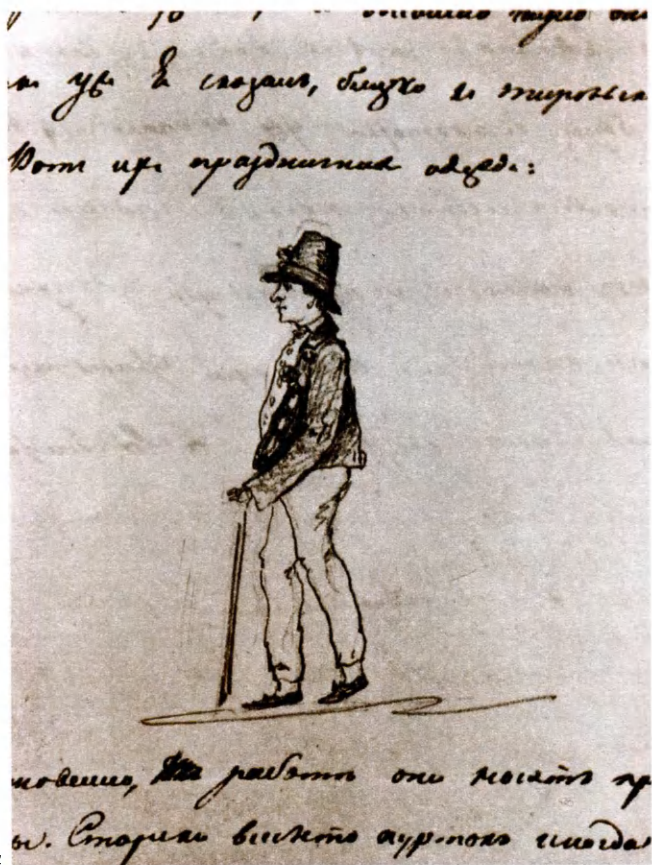 они
уже я сказалъ, близко къ тирольск
Вотъ ихъ праздничная одежда:
новенно, работѣ они носятъ пр
ы. Старики вмѣсто куртокъ иногда